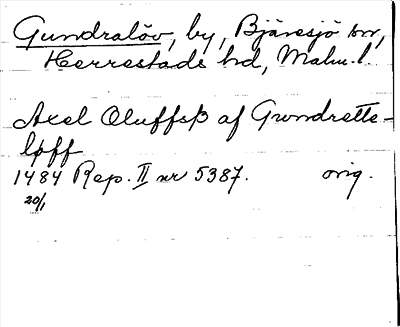 Gundralöv, by, Bjäresjö sn,
Herrestads hd, Malm. l.
Axel Oluffsß af Grundrette-
løff
1484 Rep. II nr 5387. orig.
20/1